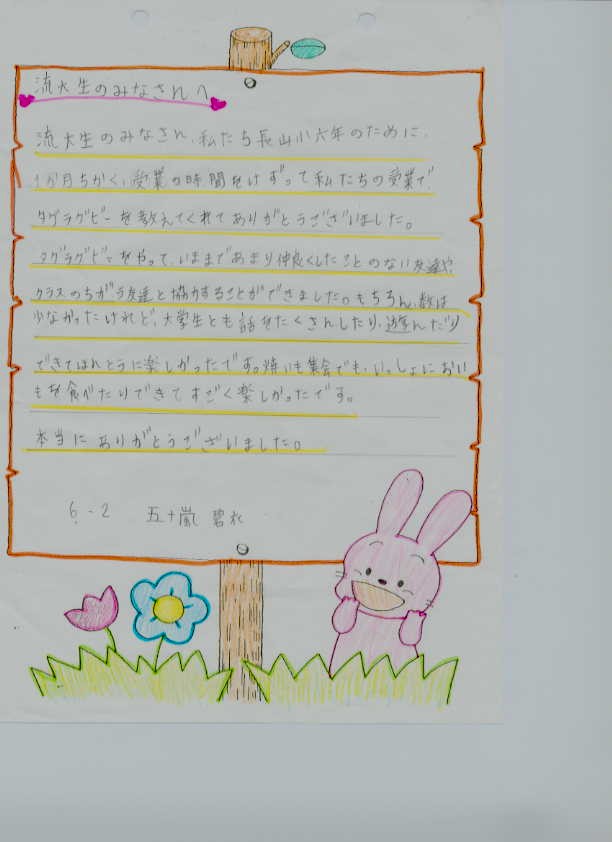 流大生のみなさんへ
流大生のみなさん、私たち長山小六年のために、
1か月ちかく、受業の時間をけずって私たちの受業で、
タグラグビーを教えてくれてありがとうございました。
タグラグビーをやって、いままであまり仲良くしたことのない友達や、
クラスのちがう友達と協力することができました。もちろん、数は
少なかったけれど、大学生とも話をたくさんしたり、遊んだり
できてほんとうに楽しかったです。焼いも集会でも、いっしょにおい
もを食べたりできてすごく楽しかったです。
本当にありがとうございました。
6-2 五十嵐 碧衣